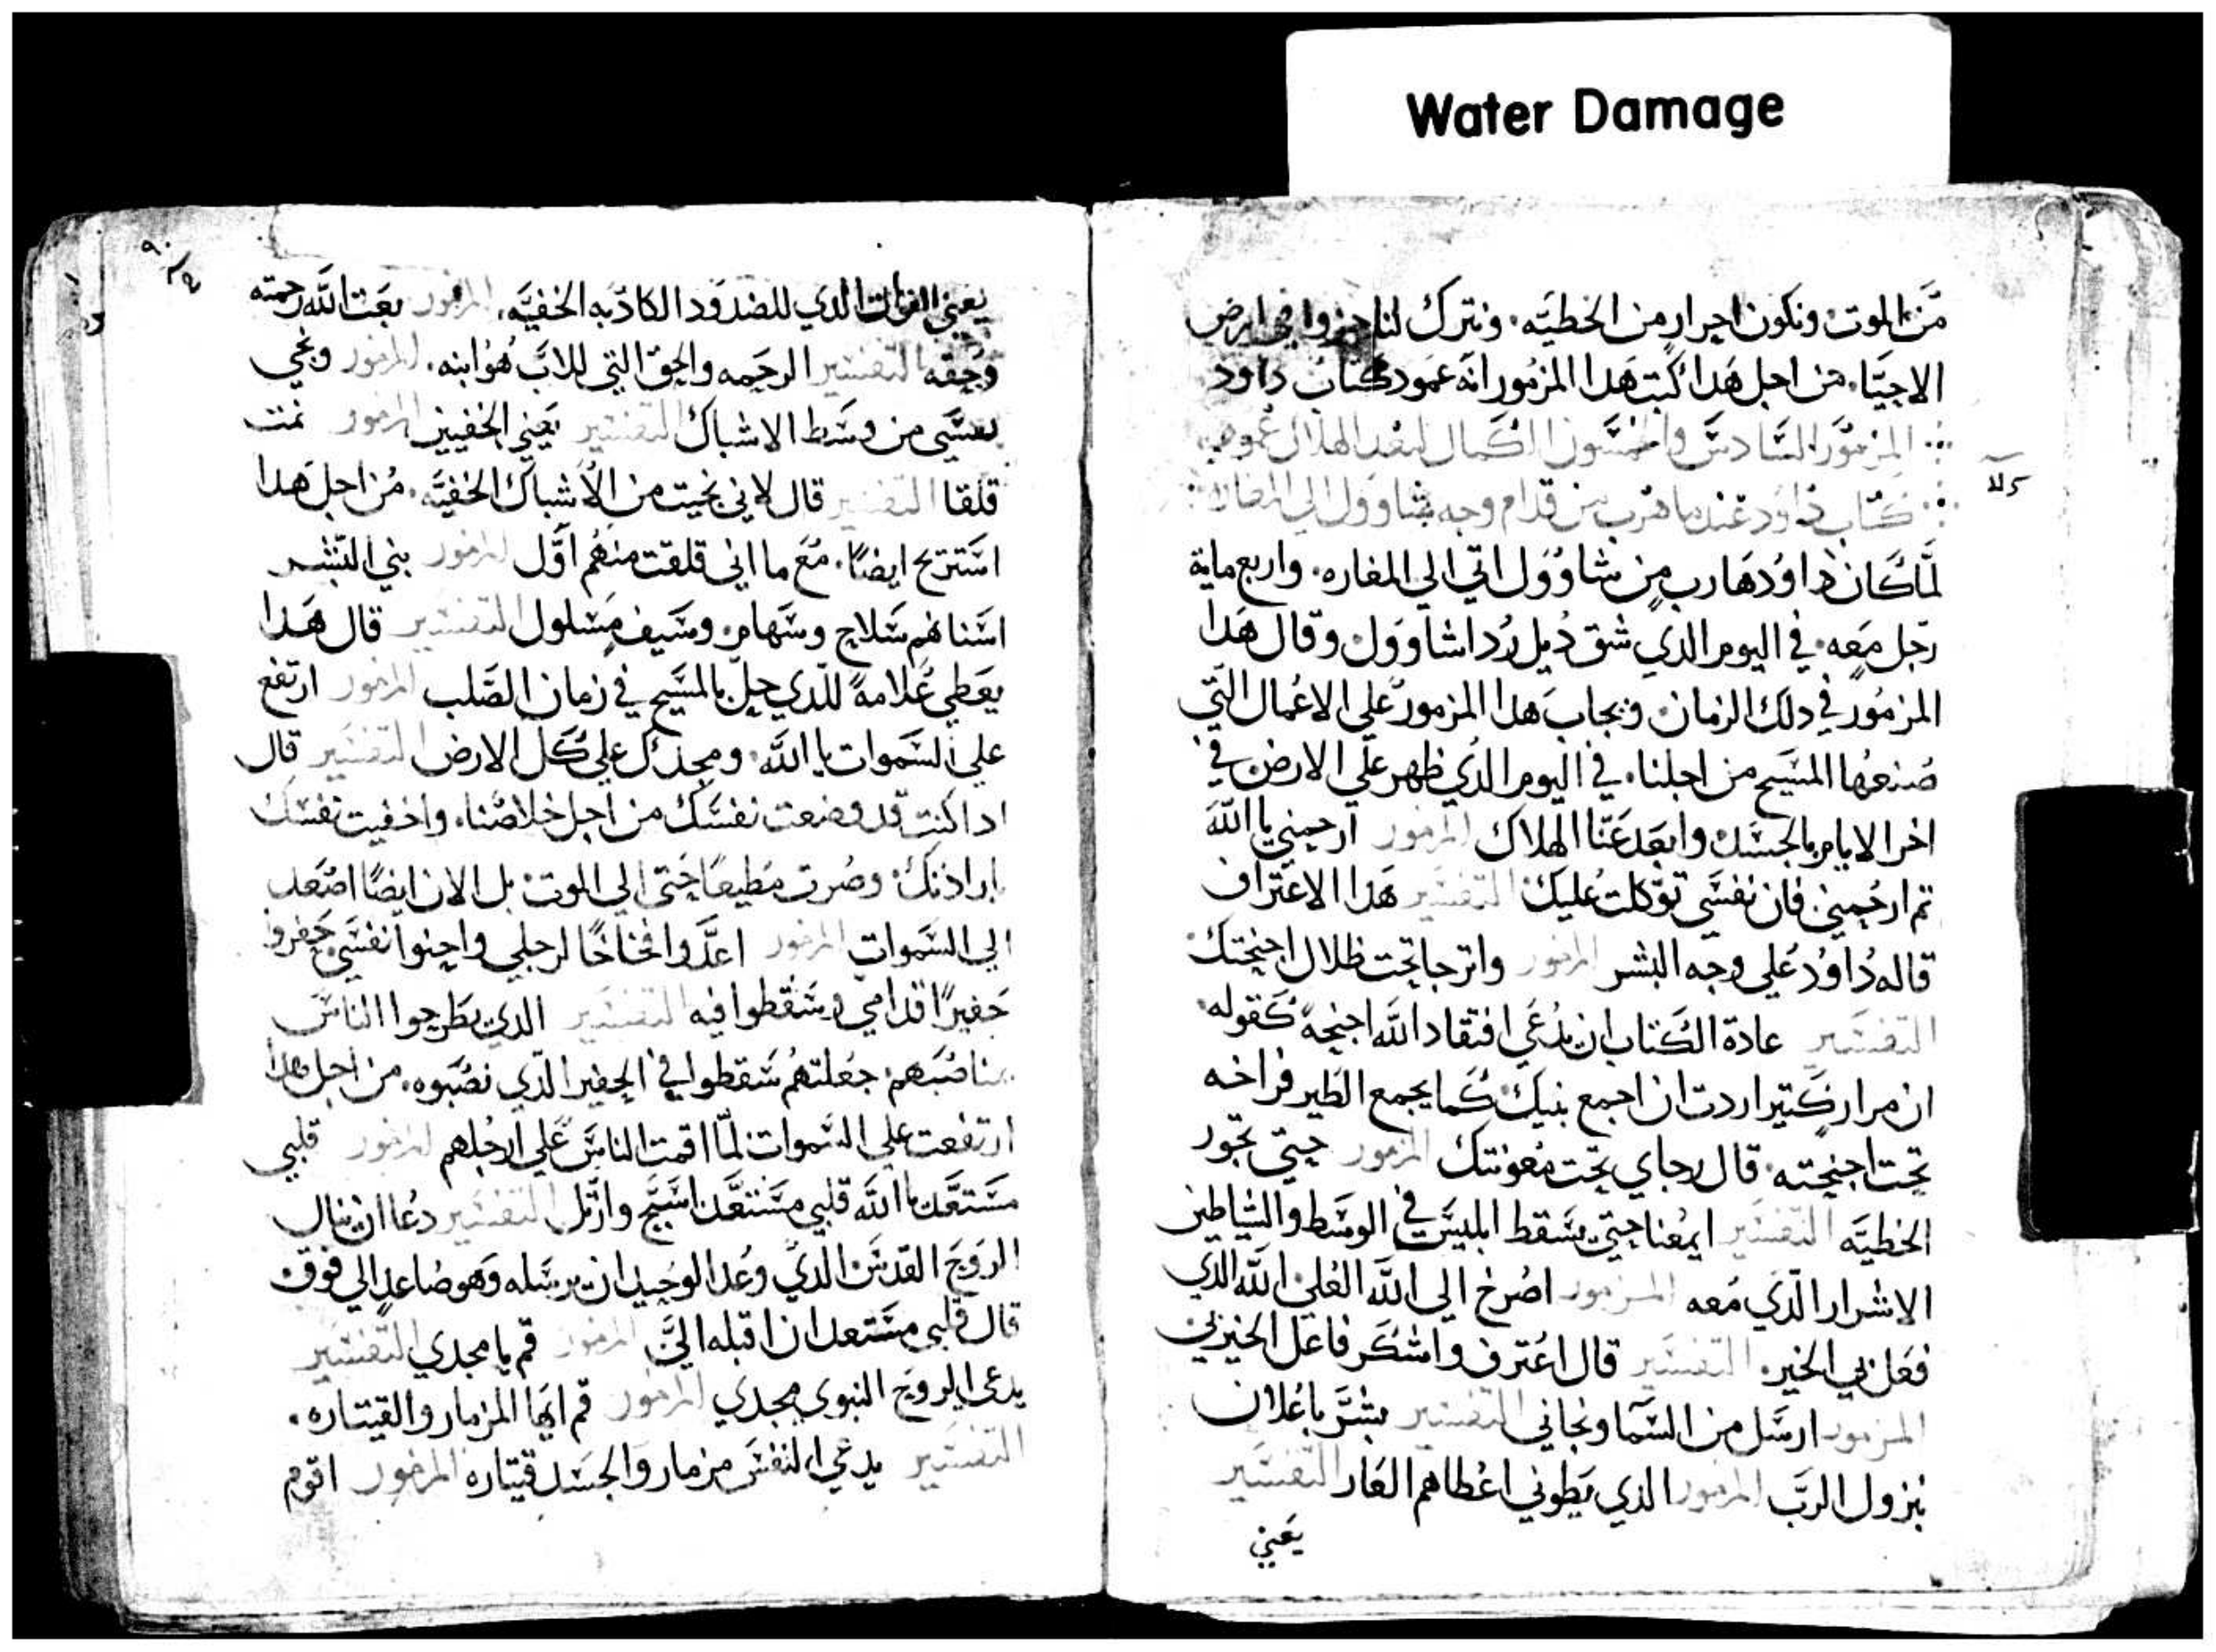 Water Damage
من الموت ونكون احرار من الخطيه. ونترك لنا في ارض
الاحيا. من اجل هدا كتب هدا المزمور انه عمود كتاب داود
المزمور السادس والخمسون الكمال لبعد الهلاك عمود
كتاب داود عندما هرب من قدام وجه شاوول الي المغارة
لما كان داود هارب من شاوول اتي الي المغاره. واربع ماية
رجل معه. في اليوم الدي شق ديل ردا شاوول وقال هدا
المزمور في دلك الزمان ويجاب هدا المزمور علي الاعمال التي
صنعها المسيح من اجلنا. في اليوم الدي ظهر علي الارض في
اخر الايام بالجسد وابعد عنا الهلاك المزمور ارحمني يا الله
تم ارحمني فان نفسي توكلت عليك التفسير هدا الاعتراف
قاله داود علي وجه البشر المزمور واترجا تحت ظلال اجنحتك
التفسير عادة الكتاب ان يدعي افتقاد الله اجنحة كقوله
ان مرار كتير اردت ان اجمع بنيك كما يجمع الطير فراخه
تحت اجنحته. قال رجاي تحت معونتك المزمور حتي تجوز
الخطيه التفسير ايمعنا حتي يسقط ابليس في الوسط والشياطين
الاشرار الدي معه المزمور اصرخ الي الله العلي الله الدي
فعل بي الخير. التفسير قال اعترف واشكر فاعل الخير بي
المزمور ارسل من السما ونجاني التفسير بشر باعلان
نزول الرب المزمور الدي يطوني اعطاهم العار التفسير
يعني
٩٠
يعني الدي للضدود الكادبه الخفيه. المزمور بعت الله رحمته
وحقه التفسير الرحمه والحق التي للاب هو ابنه. المزمور ونجي
نفسي من وسط الاشبال التفسير يعني الخفيين المزمور نمت
قلقا التفسير قال لاني نجيت من الاشبال الخفيه. من اجل هدا
استريح ايضا. مع ما اني قلقت منهم اول المزمور بني البشر
اسنانهم سلاح وسهام. وسيف مسلول التفسير قال هدا
يعطي علامة للدي حل بالمسيح في زمان الصلب المزمور ارتفع
علي السموات يا الله ومجدك علي كل الارض التفسير قال
ادا كنت قد وضعت نفسك من اجل خلاصنا. واخفيت نفسك
بارادتك وصرت مطيعا حتي الي الموت بل الان ايضا اصعد
الي السموات المزمور اعدوا فخاخا لرجلي واحنوا نفسي حفروا
حفيرا قدامي وسقطوا فيه التفسير الدي يطرحوا الناس
بمناصبهم جعلتهم سقطوا في الحفير الدي نصبوه. من اجل هدا
ارتفعت علي السموات لما اقمت الناس علي ارجلهم المزمور قلبي
مستعد يا الله قلبي مستعد اسبح وارتل التفسير دعا ان ينال
الروح القدس الدي وعد الوحيد ان يرسله وهو صاعد الي فوق
قال قلبي مستعد ان اقبله الي المزمور قم يا مجدي التفسير
يدعي الروح النبوي مجدي المزمور قم ايها المزمار والقيتاره.
التفسير يدعي النفس مزمار والجسد قيتاره المزمور اقوم